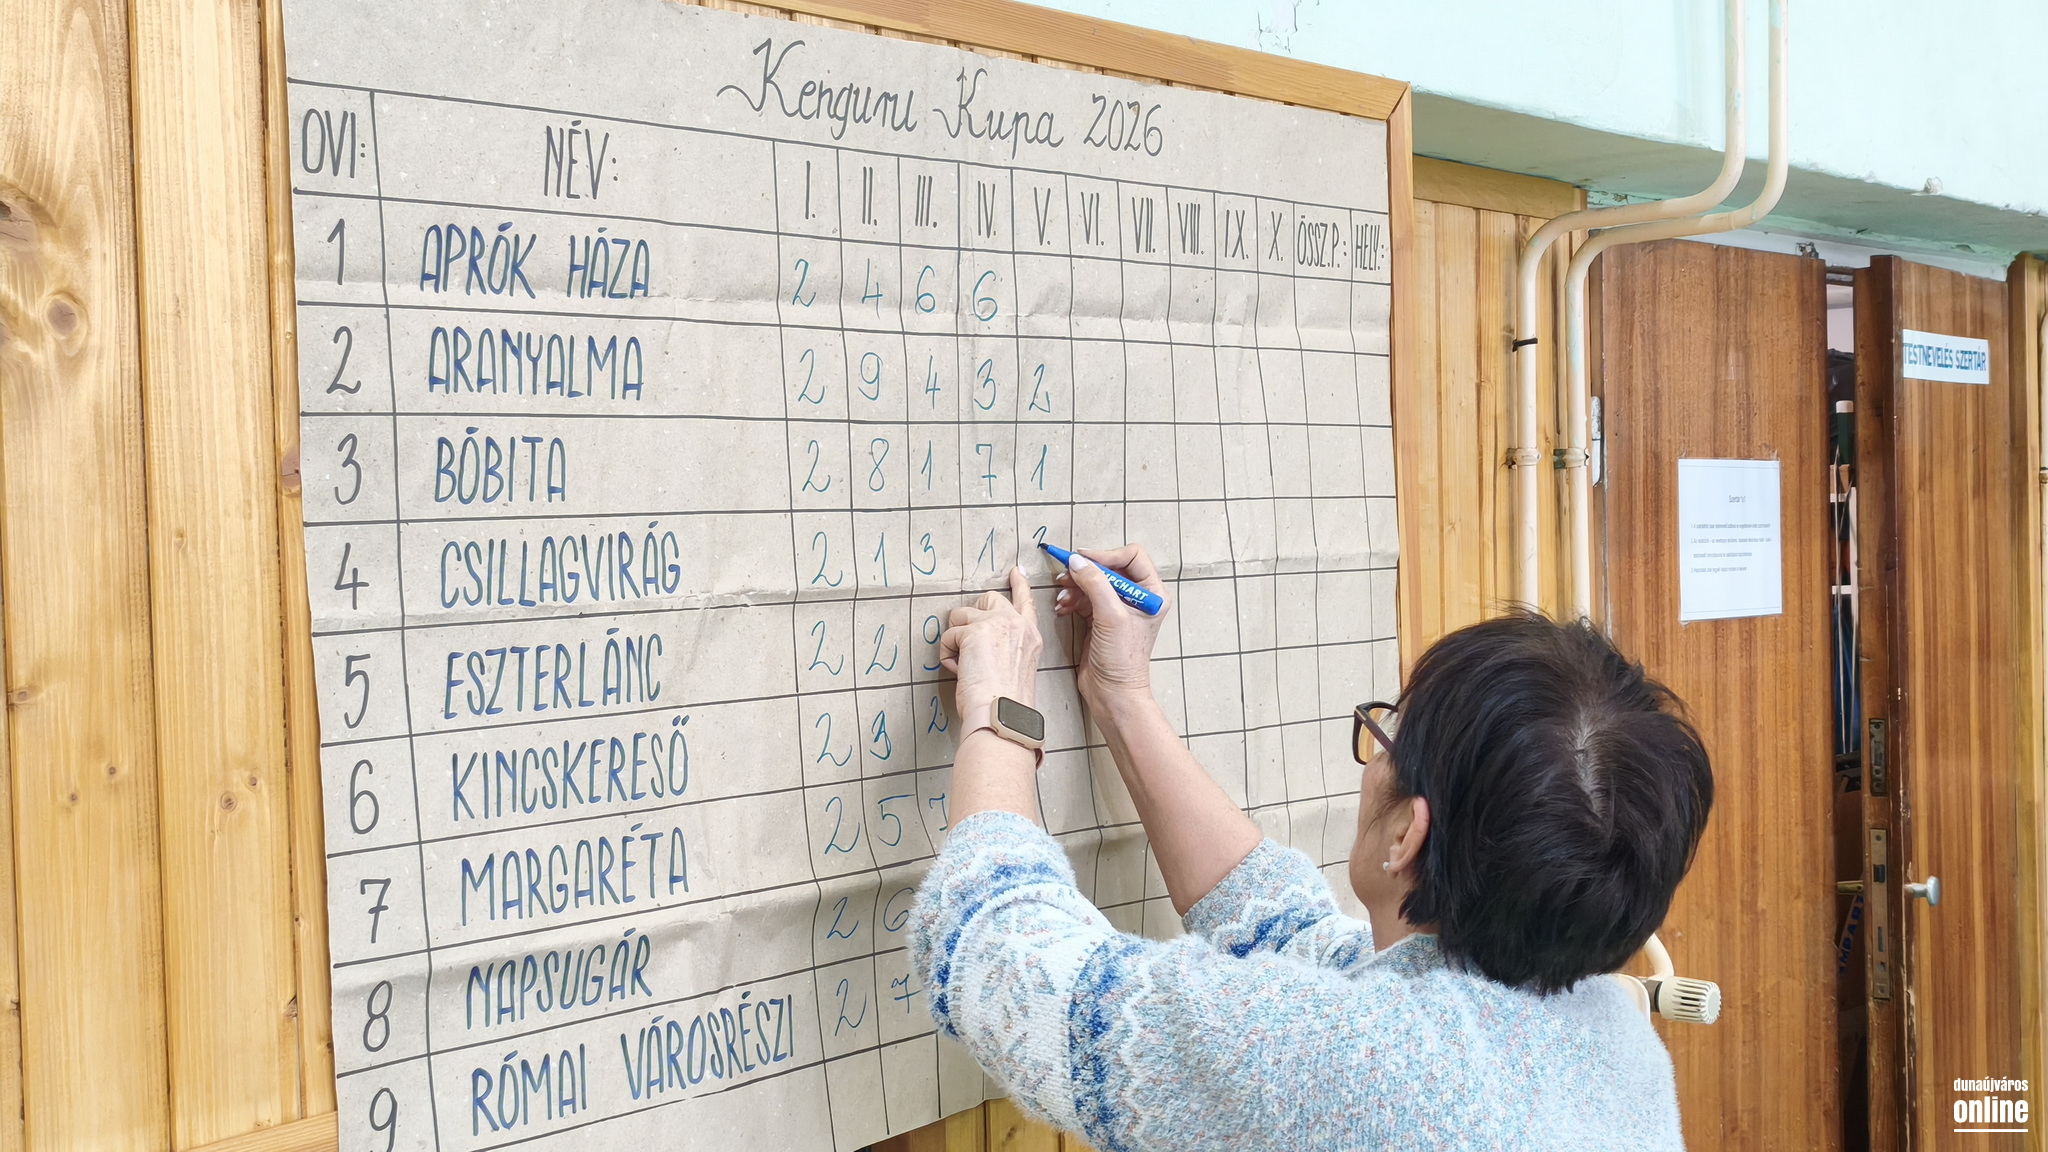 Kenguru Kupa 2026
OVI: NÉV: I. II. III. IV. V. VI. VII. VIII. IX. X. ÖSSZ.P.: HELY.:
1 APRÓK HÁZA 2 4 6 6
2 ARANYALMA 2 9 4 3 2
3 BÓBITA 2 8 1 7 1
4 CSILLAGVIRÁG 2 1 3 1
5 ESZTERLÁNC 2 2 9
6 KINCSKERESŐ 2 3 2
7 MARGARÉTA 2 5 7
8 NAPSUGÁR 2 6
9 RÓMAI VÁROSRÉSZI 2 7
TESTNEVELÉS SZERTÁR
dunaújváros
online